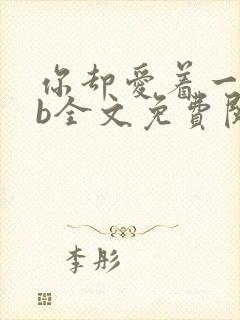 你却爱着一
b全文免費阅
李彤